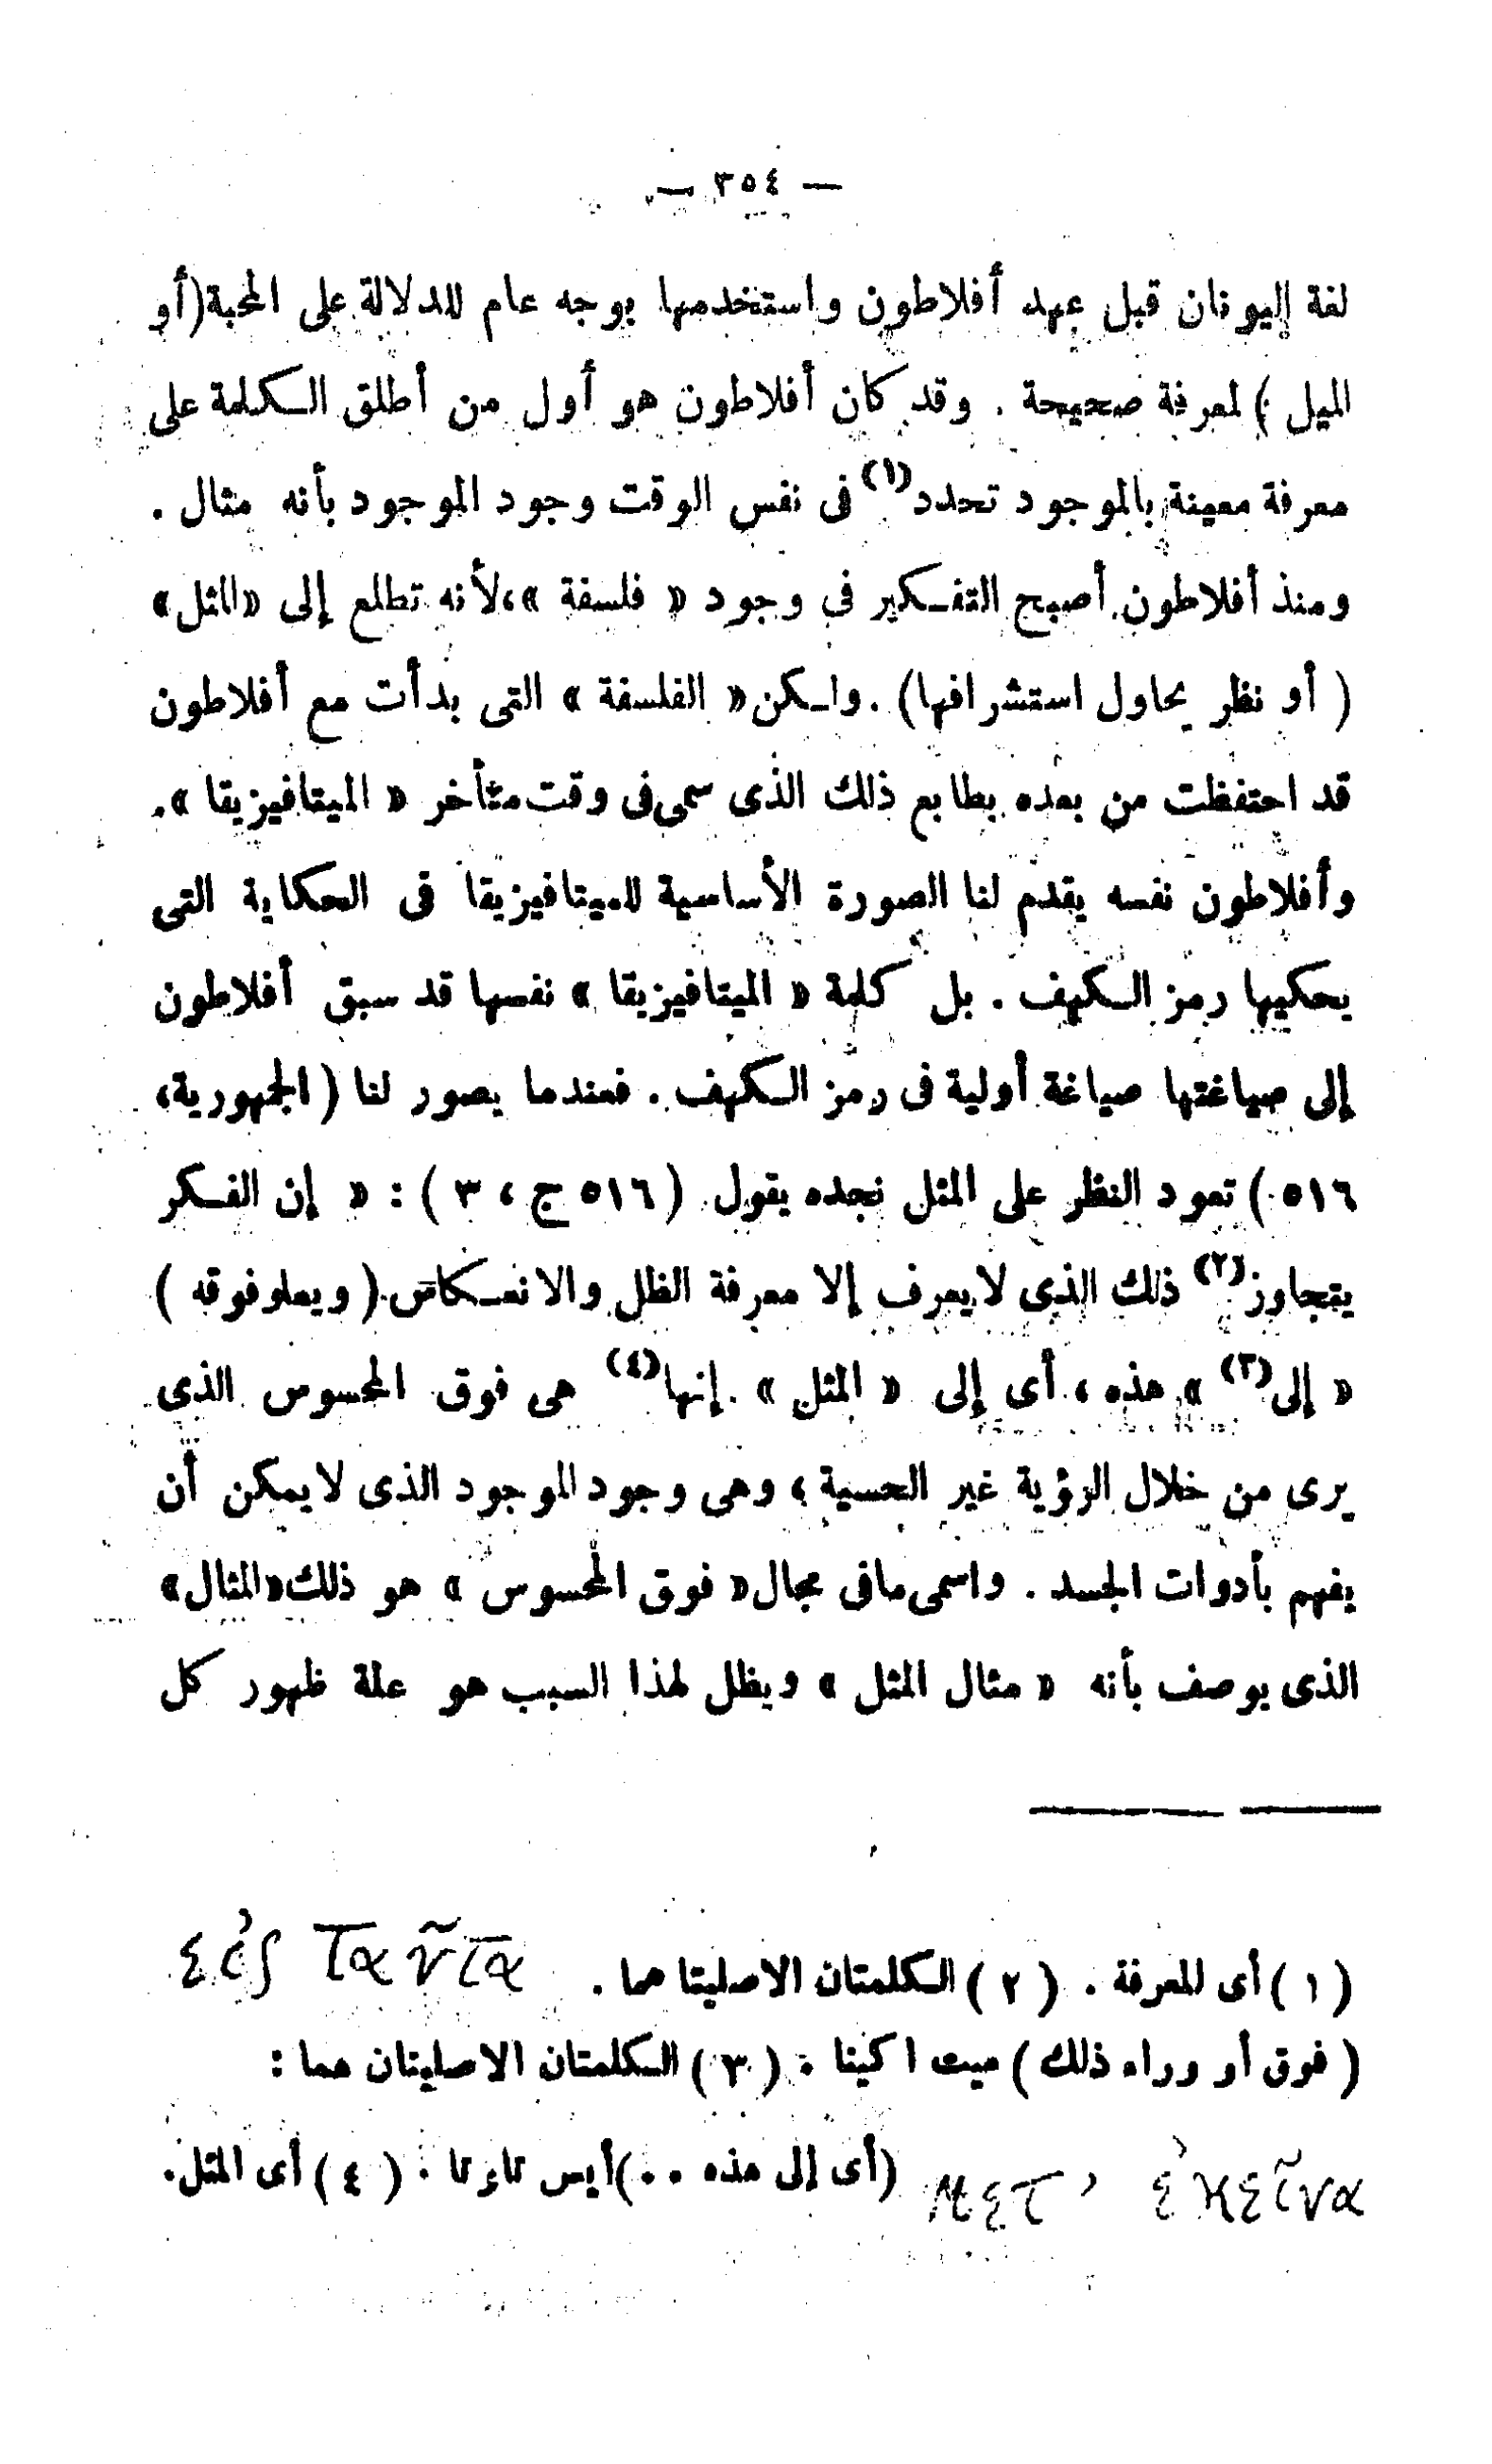 — ٣٥٤ —
لغة اليونان قبل عهد أفلاطون واستخدمها بوجه عام للدلالة على المحبة (أو
الميل ) لمعرفة صحيحة . وقد كان أفلاطون هو أول من أطلق الكلمة على
معرفة معينة بالموجود تحدد(١) فى نفس الوقت وجود الموجود بأنه مثال .
ومنذ أفلاطون أصبح التفكير فى وجود « فلسفة »، لأنه تطلع إلى «المثل»
( أو نظر يحاول استشرافها) . ولكن « الفلسفة » التى بدأت مع أفلاطون
قد احتفظت من بعده بطابع ذلك الذى سمى فى وقت متأخر « الميتافيزيقا ».
وأفلاطون نفسه يقدم لنا الصورة الأساسية للميتافيزيقا فى الحكاية التى
يحكيها رمز الكهف . بل كلمة « الميتافيزيقا » نفسها قد سبق أفلاطون
إلى صياغتها صياغة أولية فى رمز الكهف . فعندما يصور لنا ( الجمهورية،
٥١٦ ) تعود النظر على المثل نجده يقول ( ٥١٦ ج ، ٣ ) : « إن الفكر
يتجاوز(٢) ذلك الذى لا يعرف إلا معرفة الظل والانعكاس ( ويعلو فوقه )
« إلى(٣) » هذه ، أى إلى « المثل » . إنها(٤) هى فوق المحسوس الذى
يرى من خلال الرؤية غير الحسية ، وهى وجود الموجود الذى لا يمكن أن
يفهم بأدوات الجسد . واسمى ما فى مجال « فوق المحسوس » هو ذلك «المثال»
الذى يوصف بأنه « مثال المثل » ويظل لهذا السبب هو علة ظهور كل
( ١ ) أى المعرفة . ( ٢ ) الكلمتان الاصليتا هما . εἰς ταῦτα
( فوق أو وراء ذلك ) ميت اكينا . ( ٣ ) الكلمتان الاصليتان هما :
μετ' ἐκεῖνα (أى إلى هذه ..) أيس تاوتا . ( ٤ ) أى المثل.